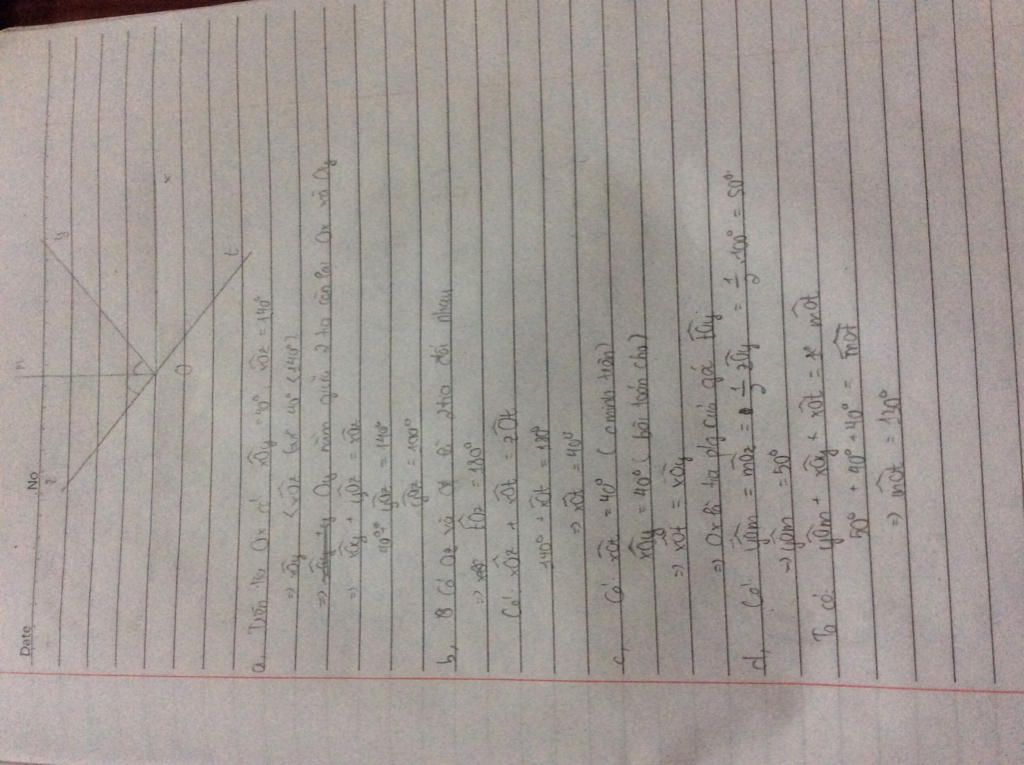 Date
No
m
z
y
x
O
t
a, Trên nửa Ox có xOy = 40° xOz = 140°
=> xOy < xOz (vì 40° < 140°)
=> Oy nằm giữa 2 tia còn lại Ox và Oz
=> xOy + yOz = xOz
40° yOz = 140°
yOz = 100°
b, Có Oz và Ot là 2 tia đối nhau
=> tOz = 180°
Có: xOz + xOt = zOt
140° + xOt = 180°
=> xOt = 40°
c, Có xOt = 40° (cminh trên)
xOy = 40° (bài toán cho)
=> xOt = xOy
=> Ox là tia p/g của góc tOy
d, Có yOm = mOz = 1/2 zOy = 1/2 . 100° = 50°
=> yOm = 50°
Ta có: yOm + xOy + xOt = mOt
50° + 40° = mOt
=> mOt = 130°